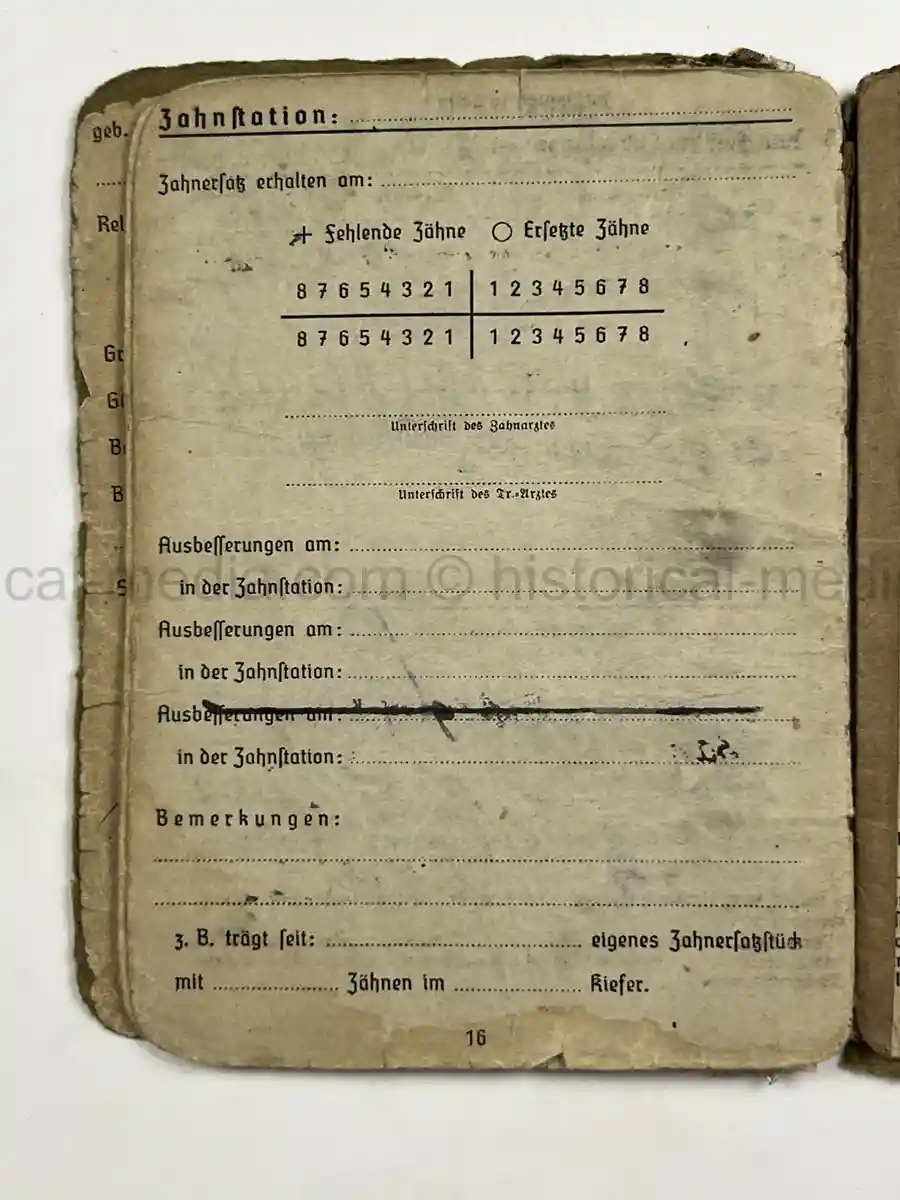 Zahnſtation:
Zahnerſatz erhalten am:
+ Fehlende Zähne ○ Erſetzte Zähne
8 7 6 5 4 3 2 1 | 1 2 3 4 5 6 7 8
8 7 6 5 4 3 2 1 | 1 2 3 4 5 6 7 8
Unterſchrift des Zahnarztes
Unterſchrift des Tr.-Arztes
Ausbeſſerungen am:
in der Zahnſtation:
Ausbeſſerungen am:
in der Zahnſtation:
Ausbeſſerungen am:
in der Zahnſtation:
Bemerkungen:
z. B. trägt ſeit: eigenes Zahnerſatzſtück
mit Zähnen im Kiefer.
16
geb.
Rel
Gr
B
S
cal-medic.com © historical-medi